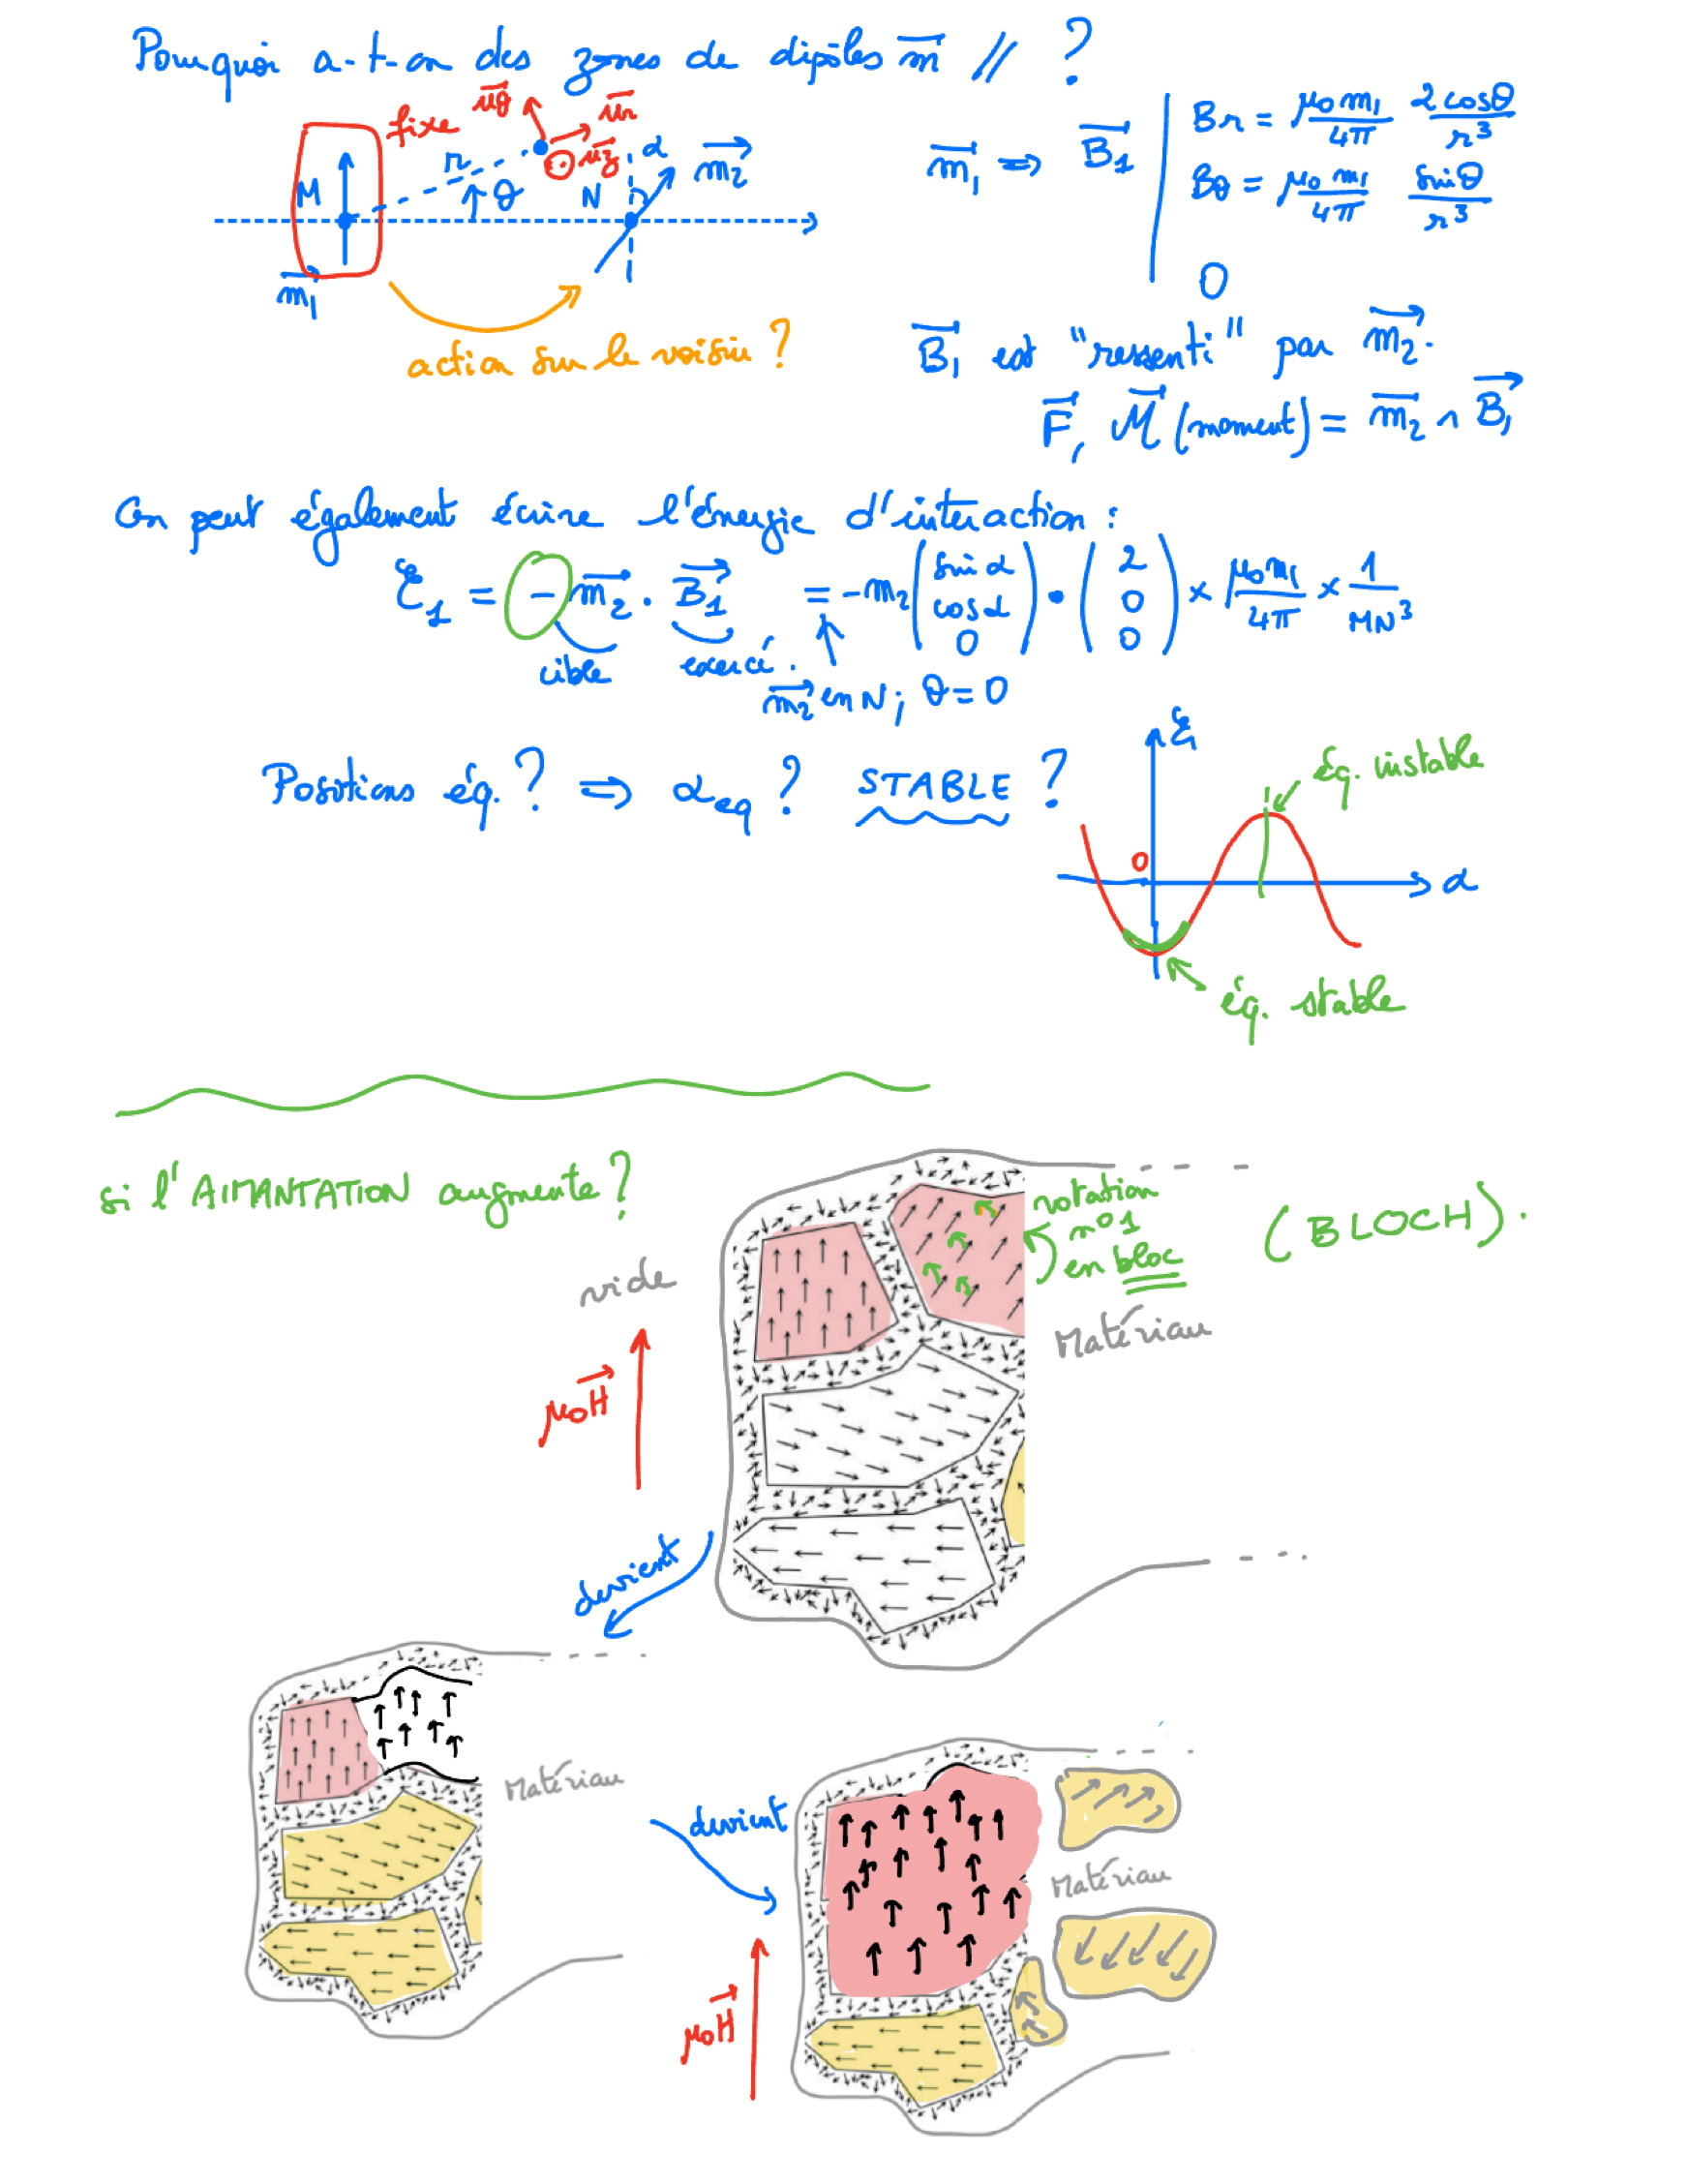 Pourquoi a-t-on des zones de dipôles \vec{m} // ?
fixe \vec{u_θ} \vec{u_r}
\vec{u_z}
M r θ N α \vec{m_2}
\vec{m_1}
action sur le voisin ?
\vec{m_1} ⇒ \vec{B_1} | B_r = \frac{μ_0 m_1}{4π} \frac{2 cos θ}{r^3}
B_θ = \frac{μ_0 m_1}{4π} \frac{sin θ}{r^3}
0
\vec{B_1} est "ressenti" par \vec{m_2}.
\vec{F}, \vec{M} (moment) = \vec{m_2} ∧ \vec{B_1}
On peut également écrire l'énergie d'interaction :
ℰ_1 = - \vec{m_2} . \vec{B_1} = - m_2 (sin α, cos α, 0) • (2, 0, 0) × \frac{μ_0 m_1}{4π} × \frac{1}{MN^3}
cible exercé.
\vec{m_2} en N ; θ = 0
Positions éq. ? ⇒ α_{eq} ? STABLE ?
ℰ_1
éq. instable
0
α
éq. stable
si l'AIMANTATION augmente ?
rotation
n°1
en bloc
(BLOCH).
vide
Matériau
μ_0 \vec{H}
devient
Matériau
devient
Matériau
μ_0 \vec{H}